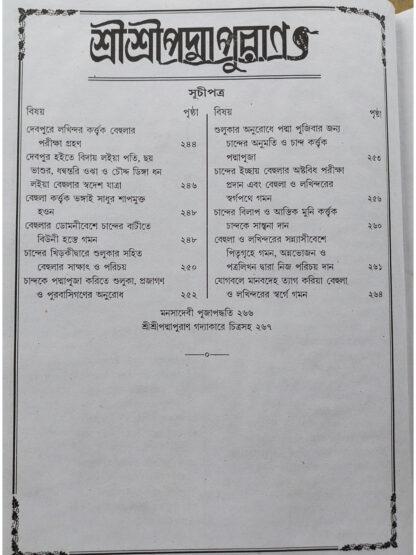 শ্রীশ্রীপদ্মাপুরাণ
সূচীপত্র
বিষয় পৃষ্ঠা
দেবপুরে লখিন্দর কর্ত্তৃক বেহুলার
পরীক্ষা গ্রহণ ২৪৪
দেবপুর হইতে বিদায় লইয়া পতি, ছয়
ভাশুর, ধন্বন্তরি ওঝা ও চৌদ্দ ডিঙ্গা ধন
লইয়া বেহুলার স্বদেশ যাত্রা ২৪৬
বেহুলা কর্ত্তৃক ভঙ্গাই সাধুর শাপমুক্ত
হওন ২৪৮
বেহুলার ডোমনীবেশে চান্দের বাটীতে
বিউনী হস্তে গমন ২৪৮
চান্দের খিড়কীদ্বারে শুলুকার সহিত
বেহুলার সাক্ষাৎ ও পরিচয় ২৫০
চান্দকে পদ্মাপূজা করিতে শুলুকা, প্রজাগণ
ও পুরবাসিগণের অনুরোধ ২৫২
বিষয় পৃষ্ঠা
শুলুকার অনুরোধে পদ্মা পূজিবার জন্য
চান্দের অনুমতি ও চান্দ কর্ত্তৃক
পদ্মাপূজা ২৫৩
চান্দের ইচ্ছায় বেহুলার অষ্টবিধ পরীক্ষা
প্রদান এবং বেহুলা ও লখিন্দরের
স্বর্গপথে গমন ২৫৬
চান্দের বিলাপ ও আস্তিক মুনি কর্ত্তৃক
চান্দকে সান্ত্বনা দান ২৬০
বেহুলা ও লখিন্দরের সন্ন্যাসীবেশে
পিতৃগৃহে গমন, অন্নভোজন ও
পত্রলিখন দ্বারা নিজ পরিচয় দান ২৬১
যোগবলে মানবদেহ ত্যাগ করিয়া বেহুলা
ও লখিন্দরের স্বর্গে গমন ২৬৪
মনসাদেবী পূজাপদ্ধতি ২৬৬
শ্রীশ্রীপদ্মাপুরাণ গদ্যাকারে চিত্রসহ ২৬৭